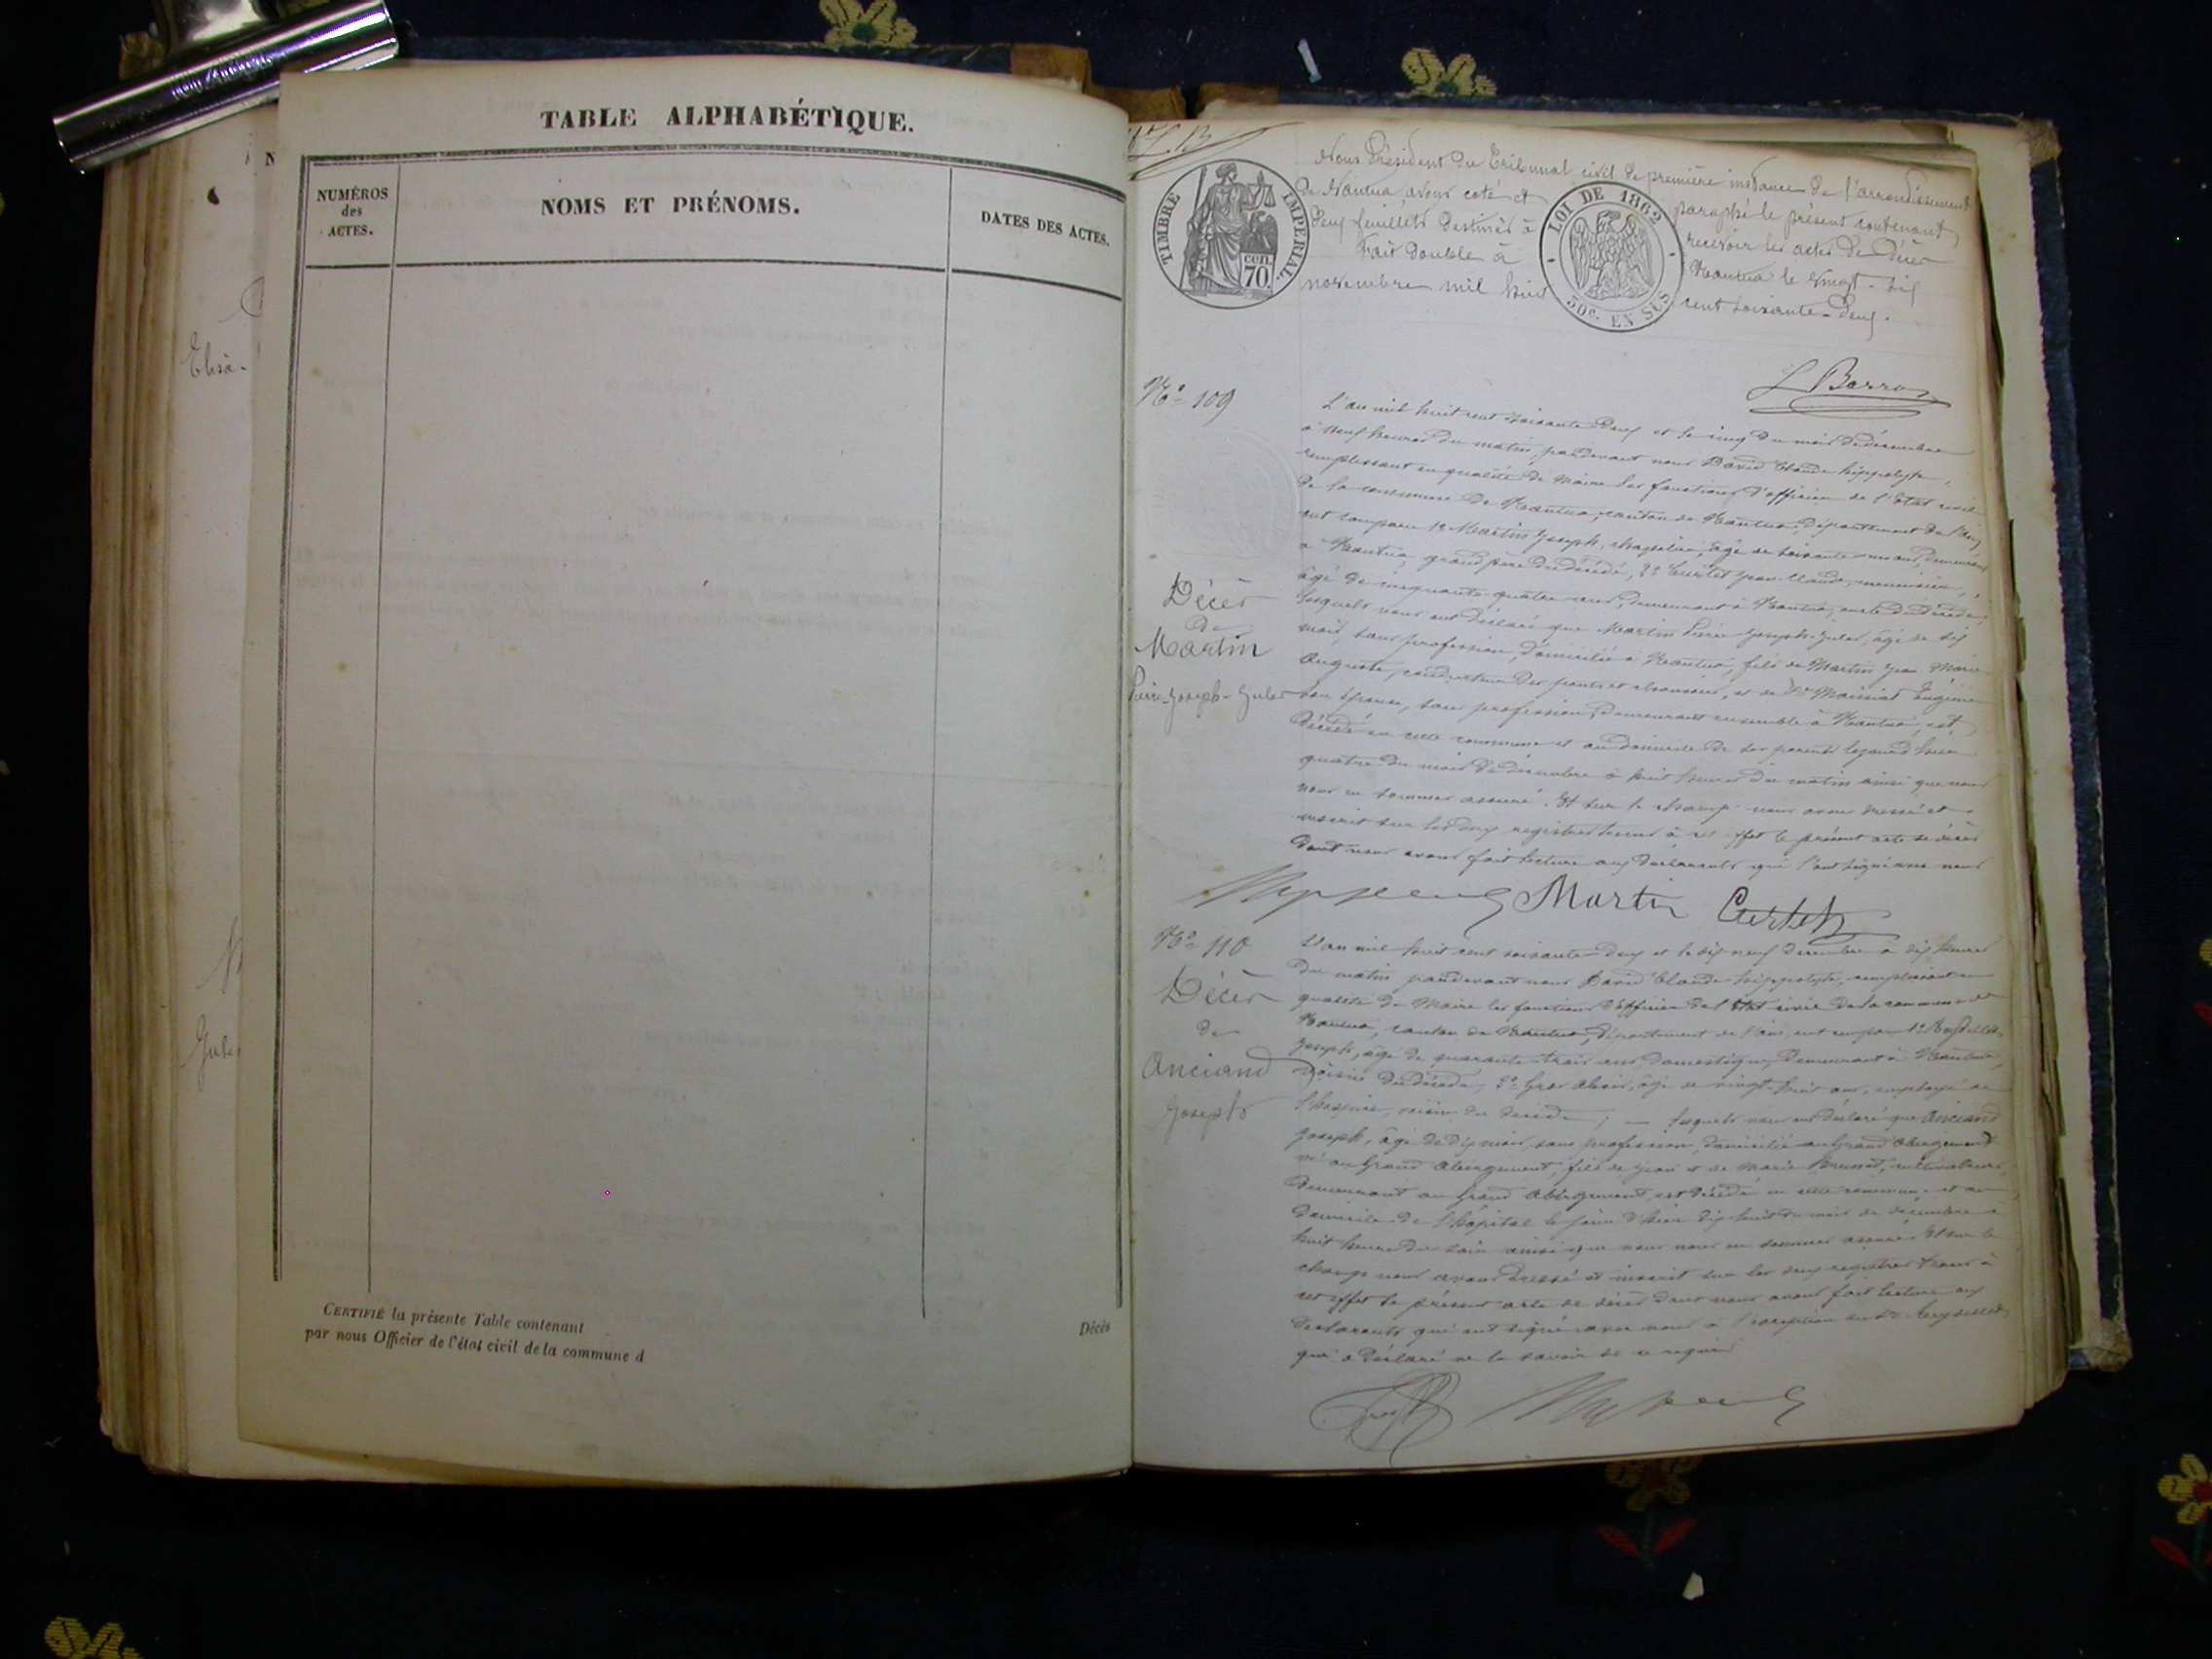 Elisa-
Jules
TABLE ALPHABÉTIQUE.
NUMÉROS
des
ACTES.
NOMS ET PRÉNOMS.
DATES DES ACTES.
CERTIFIÉ la présente Table contenant
Décès
par nous Officier de l'état civil de la commune d
TIMBRE IMPÉRIAL.
70. cen.
LOI DE 1862
50c. EN SUS
Nous Président du Tribunal civil de première instance de l'arrondissement
de Nantua, avons coté et paraphé le présent contenant
deux feuillets destinés à recevoir les actes de décès
Fait double à Nantua le vingt-six
novembre mil huit cent soixante-deux.
L Barro
No 109
Décès
de
Martin
Pierre-Joseph-Jules
L'an mil huit cent soixante-deux et le cinq du mois de décembre
à neuf heures du matin, pardevant nous David Claude hippolyte,
remplissant en qualité de Maire les fonctions d'officier de l'état civil
de la commune de Nantua, canton de Nantua, département de l'ain
ont comparu 1o Martin Joseph, chapelier, âgé de soixante-un ans, demeurant
à Nantua, grand père du décédé, 2o Curtet Jean-Claude, menuisier,
âgé de cinquante-quatre ans, demeurant à Nantua, oncle du décédé,
lesquels nous ont déclaré que Martin Pierre Joseph-Jules, âgé de six
mois, sans profession, domicilié à Nantua, fils de Martin Jean Marie
Auguste, conducteur des ponts et chaussées, et de Maissiat Eugénie
son épouse, sans profession, demeurant ensemble à Nantua, est
décédé en cette commune et au domicile de ses parents le jour d'hier
quatre du mois de décembre à huit heures du matin ainsi que nous
nous en sommes assuré. Et sur le champ nous avons dressé et
inscrit sur les deux registres tenus à cet effet le présent acte de décès
dont nous avons fait lecture aux déclarants qui l'ont signé avec nous
Martin Curtet
No 110
Décès
de
Anciand
Joseph
L'an mil huit cent soixante-deux et le dix neuf décembre à dix heures
du matin pardevant nous David Claude hippolyte, remplissant en
qualité de Maire les fonctions d'officier de l'état civil de la commune de
Nantua, canton de Nantua, département de l'ain, ont comparu 1o
Joseph, âgé de quarante-trois ans, domestique, demeurant à Nantua,
voisin du décédé, 2o Gros Alexis, âgé de vingt-huit ans, employé de
l'hospice, voisin du décédé; — lesquels nous ont déclaré que Anciand
Joseph, âgé de dix mois, sans profession, domicilié au Grand Abergement
né au Grand Abergement, fils de Jean et de Marie Brunet, cultivateurs,
demeurant au Grand Abergement, est décédé en cette commune et au
domicile de l'hôpital le jour d'hier dix huit du mois de décembre à
huit heures du soir ainsi que nous nous en sommes assuré. Et sur le
champ nous avons dressé et inscrit sur les deux registres tenus à
cet effet le présent acte de décès dont nous avons fait lecture aux
déclarants qui ont signé avec nous à l'exception du
qui a déclaré ne le savoir de ce requis